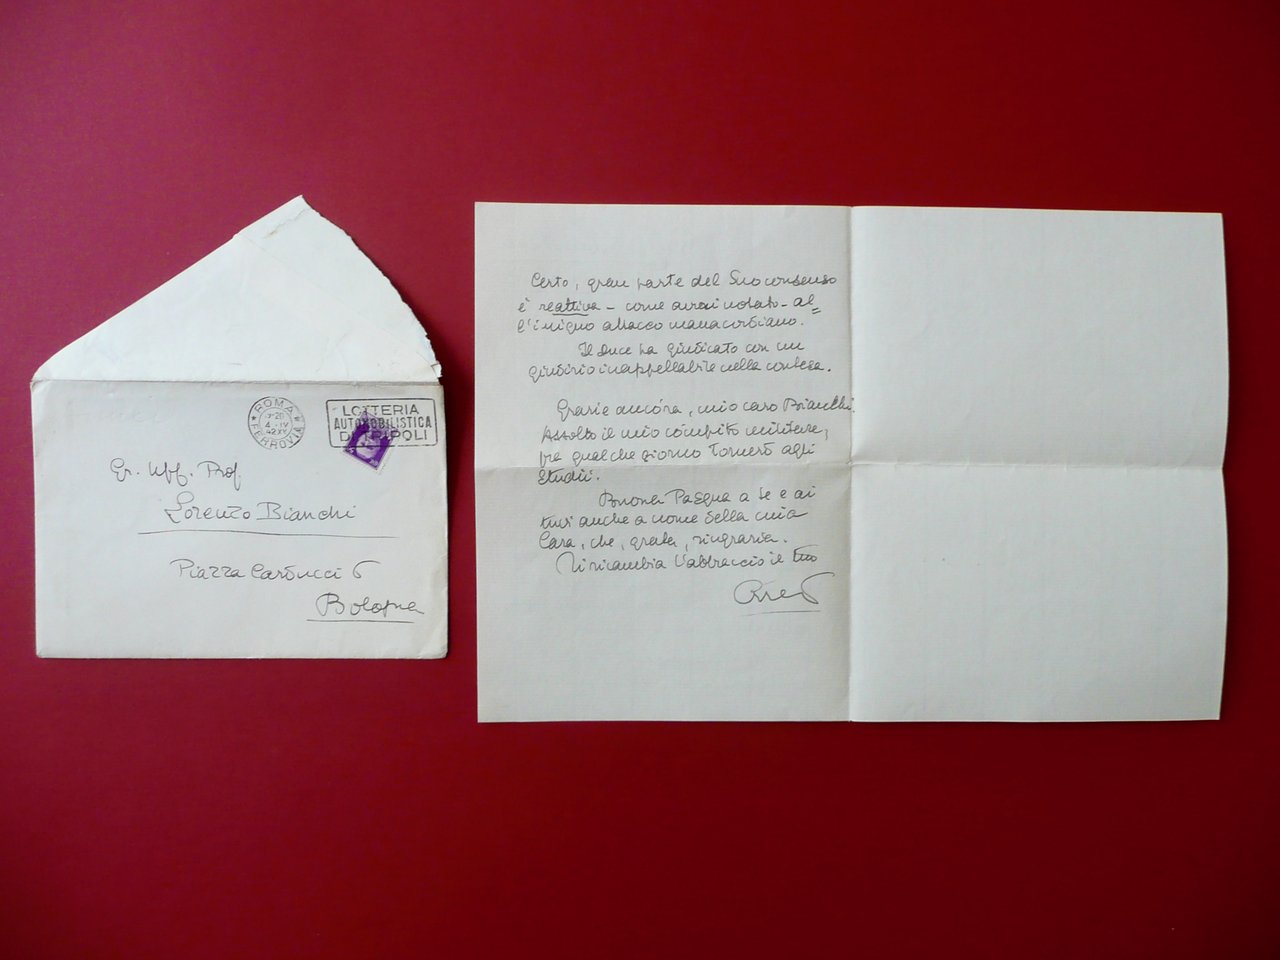 ROMA
FERROVIA
4-IV
LOTTERIA
AUTOMOBILISTICA
DI TRIPOLI
Gr. Uff. Prof.
Lorenzo Bianchi
Piazza Carducci 6
Bologna
Certo, gran parte del Suo consenso
è reattiva - come avrai notato - al=
l'iniquo attacco manacordiano.
Il Duce ha giudicato con un
giudizio inappellabile nella contesa.
Grazie ancóra, mio caro Bianchi.
Assolto il mio cómpito militare,
fra qualche giorno tornerò agli
studii.
Buona Pasqua a te e ai
tuoi anche a nome della mia
Cara, che, grata, ringrazia.
Ti ricambia l'abbraccio il tuo